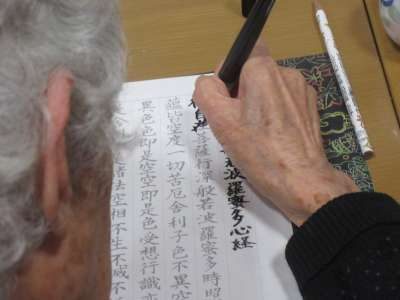 波羅蜜多心経
自在菩薩行深般若波羅蜜多時照
蘊皆空度一切苦厄舎利子色不異空
異色色即是空空即是色受想行識亦
是諸法空相不生不滅不